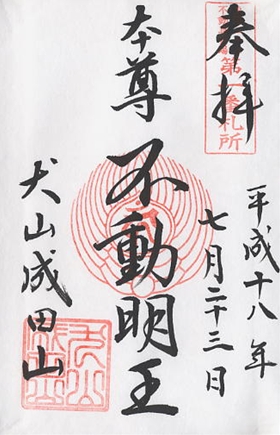 奉拝
第
札所
平成十八年
七月二十三日
本尊
不動明王
犬山成田山